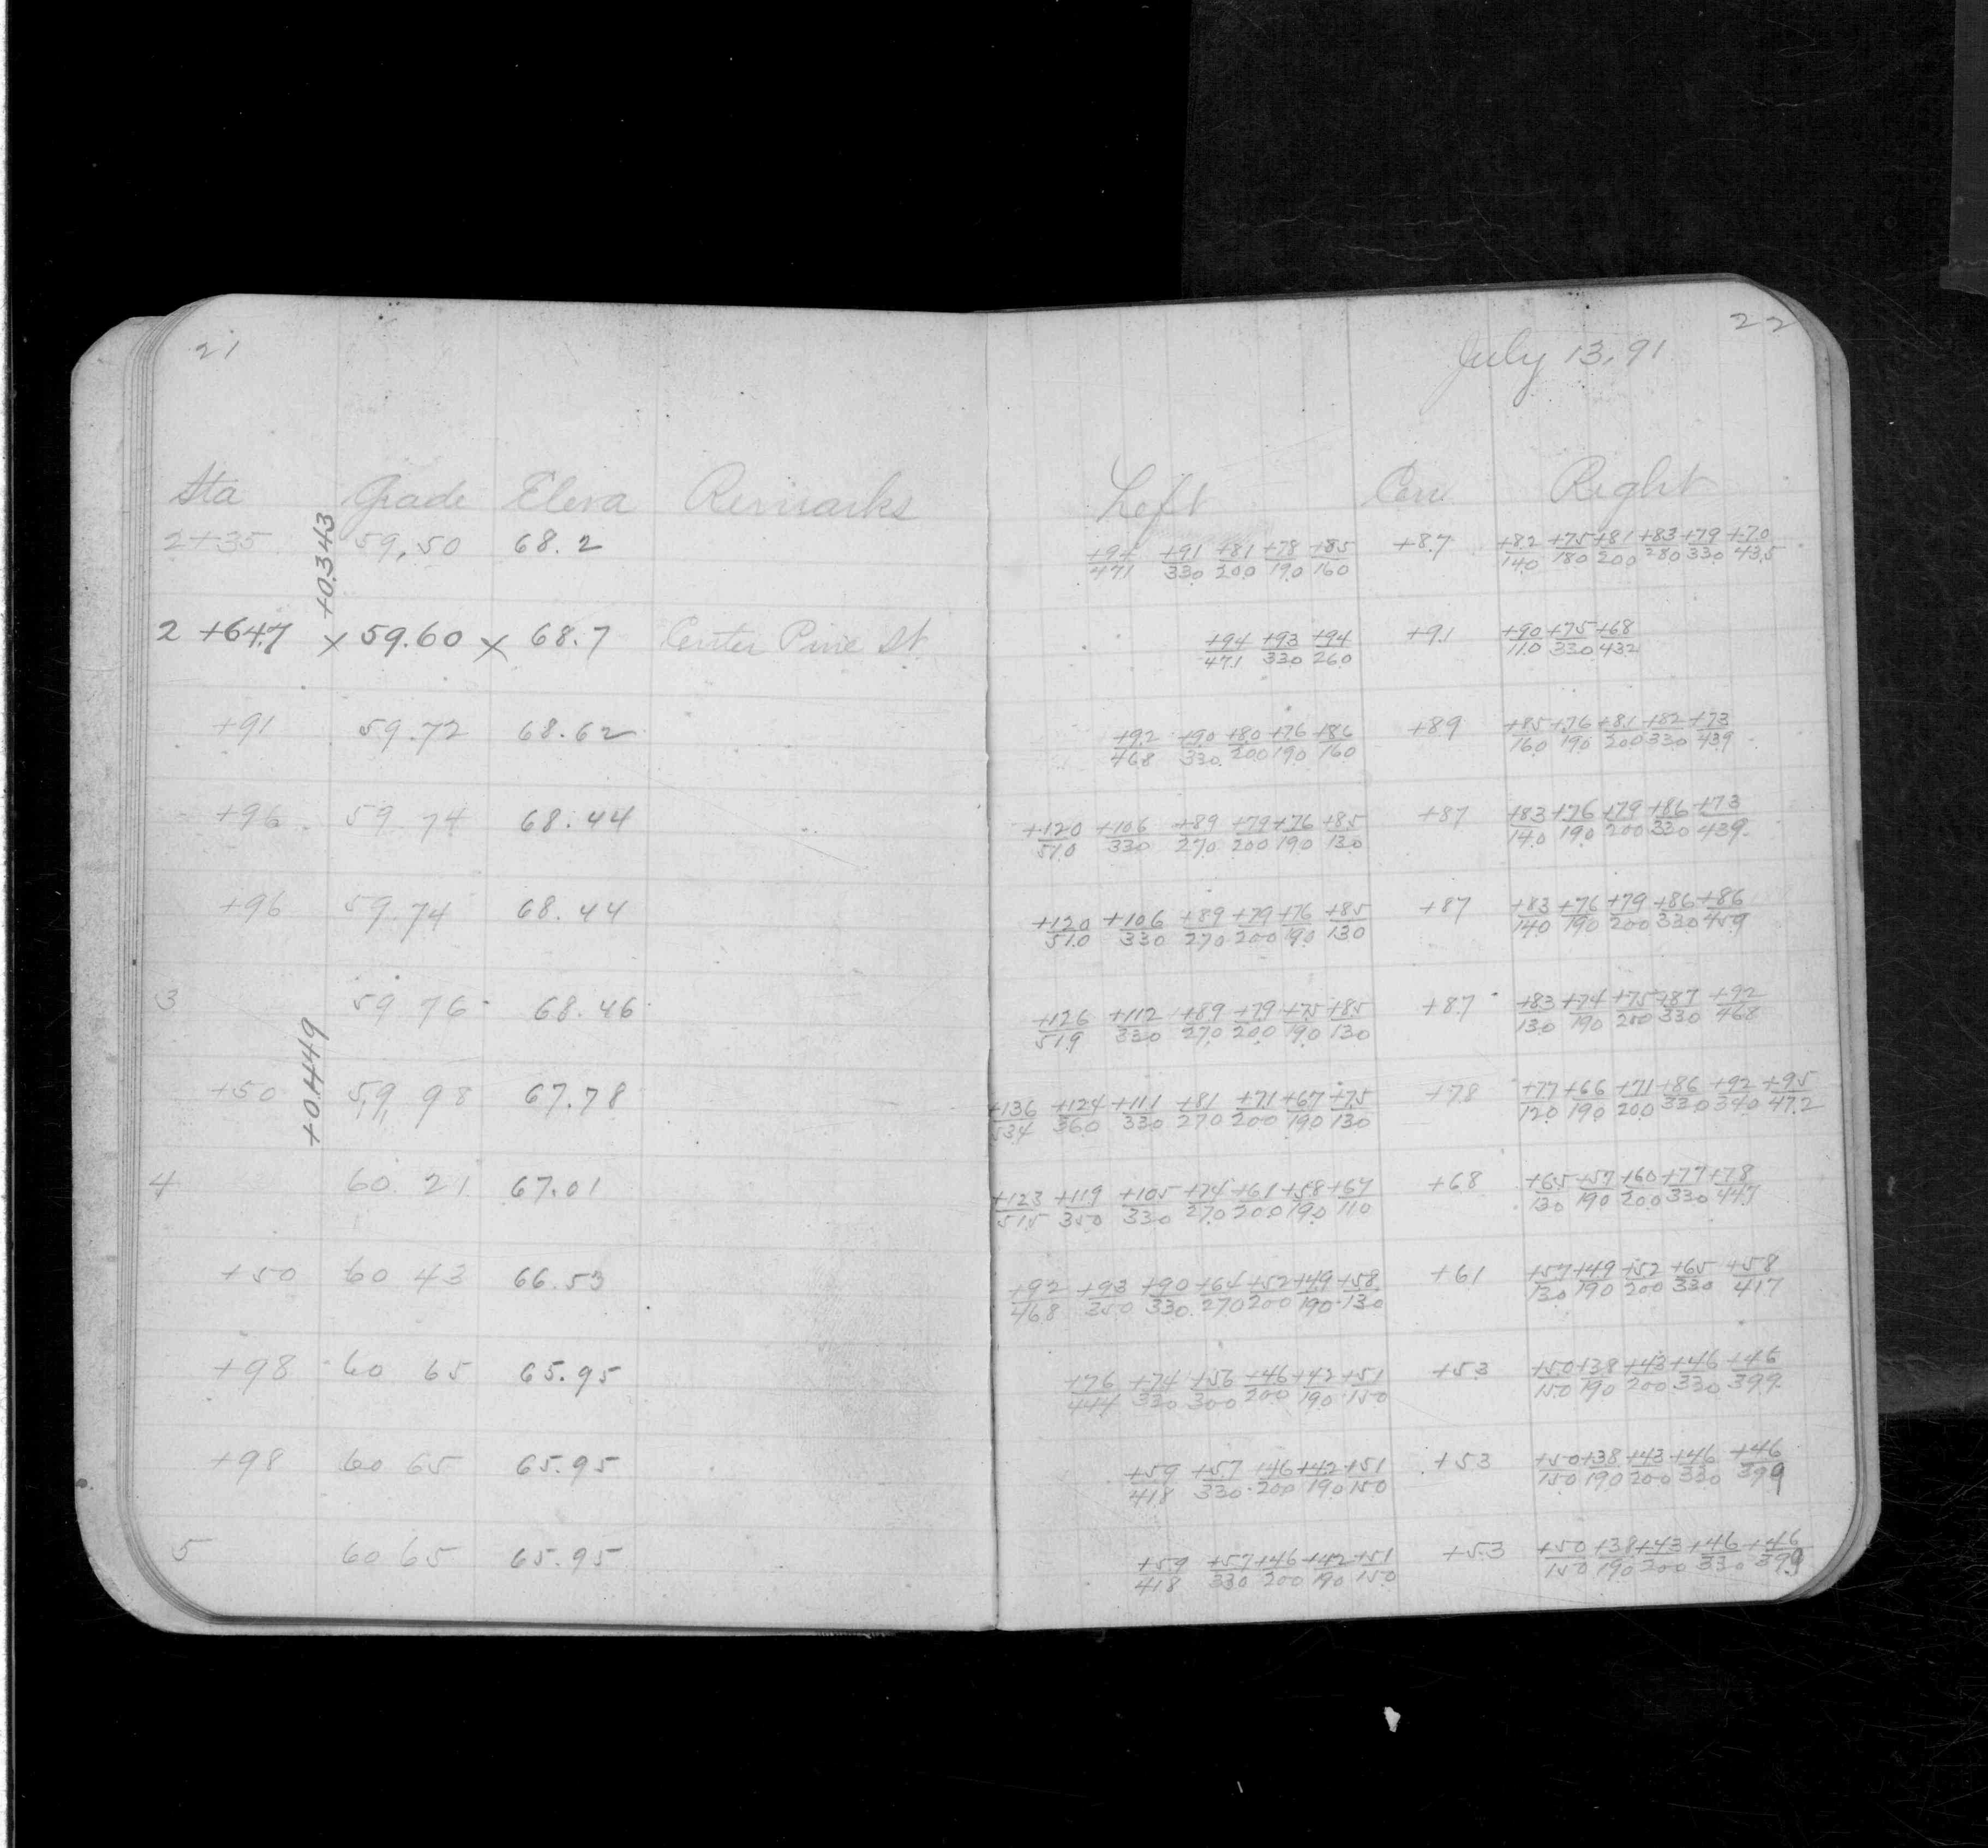 21
Sta Grade Eleva Remarks
2+35 59.50 68.2
+0.343
2 +64.7 × 59.60 × 68.7 Center Pine St
+91 59.72 68.62
+96 59.74 68.44
+96 59.74 68.44
3 59 76 68.46
+0.449
+50 59 98 67.78
4 60 21 67.01
+50 60 43 66.53
+98 60 65 65.95
+98 60 65 65.95
5 60 65 65.95
22
July 13, 91
Left Cen Right
+94/471 +91/330 +81/200 +78/190 +85/160 +8.7 +82/140 +75/180 +81/200 +83/280 +79/330 +70/435
+94/471 +93/330 +94/260 +9.1 +90/110 +75/330 +68/432
+92/468 +90/330 +80/200 +76/190 +86/160 +89 +85/160 +76/190 +81/200 +82/330 +73/439
+120/510 +106/330 +89/270 +79/200 +76/190 +85/130 +87 +83/140 +76/190 +79/200 +86/330 +73/439
+120/510 +106/330 +89/270 +79/200 +76/190 +85/130 +87 +83/140 +76/190 +79/200 +86/330 +86/459
+126/519 +112/330 +89/270 +79/200 +75/190 +85/130 +8.7 +83/130 +74/190 +75/200 +87/330 +92/468
+136/534 +124/360 +111/330 +81/270 +71/200 +67/190 +75/130 +78 +77/120 +66/190 +71/200 +86/330 +92/340 +95/47.2
+123/515 +119/350 +105/330 +74/270 +61/200 +58/190 +67/110 +68 +65/130 +57/190 +60/200 +77/330 +78/447
+92/468 +93/350 +90/330 +64/270 +52/200 +49/190 +58/130 +61 +57/130 +49/190 +52/200 +65/330 +58/417
+76/444 +74/330 +56/300 +46/200 +42/190 +51/150 +53 +50/150 +38/190 +43/200 +46/330 +46/399
+59/418 +57/330 +46/200 +42/190 +51/150 +53 +50/150 +38/190 +43/200 +46/330 +46/399
+59/418 +57/330 +46/200 +42/190 +51/150 +53 +50/150 +38/190 +43/200 +46/330 +46/399